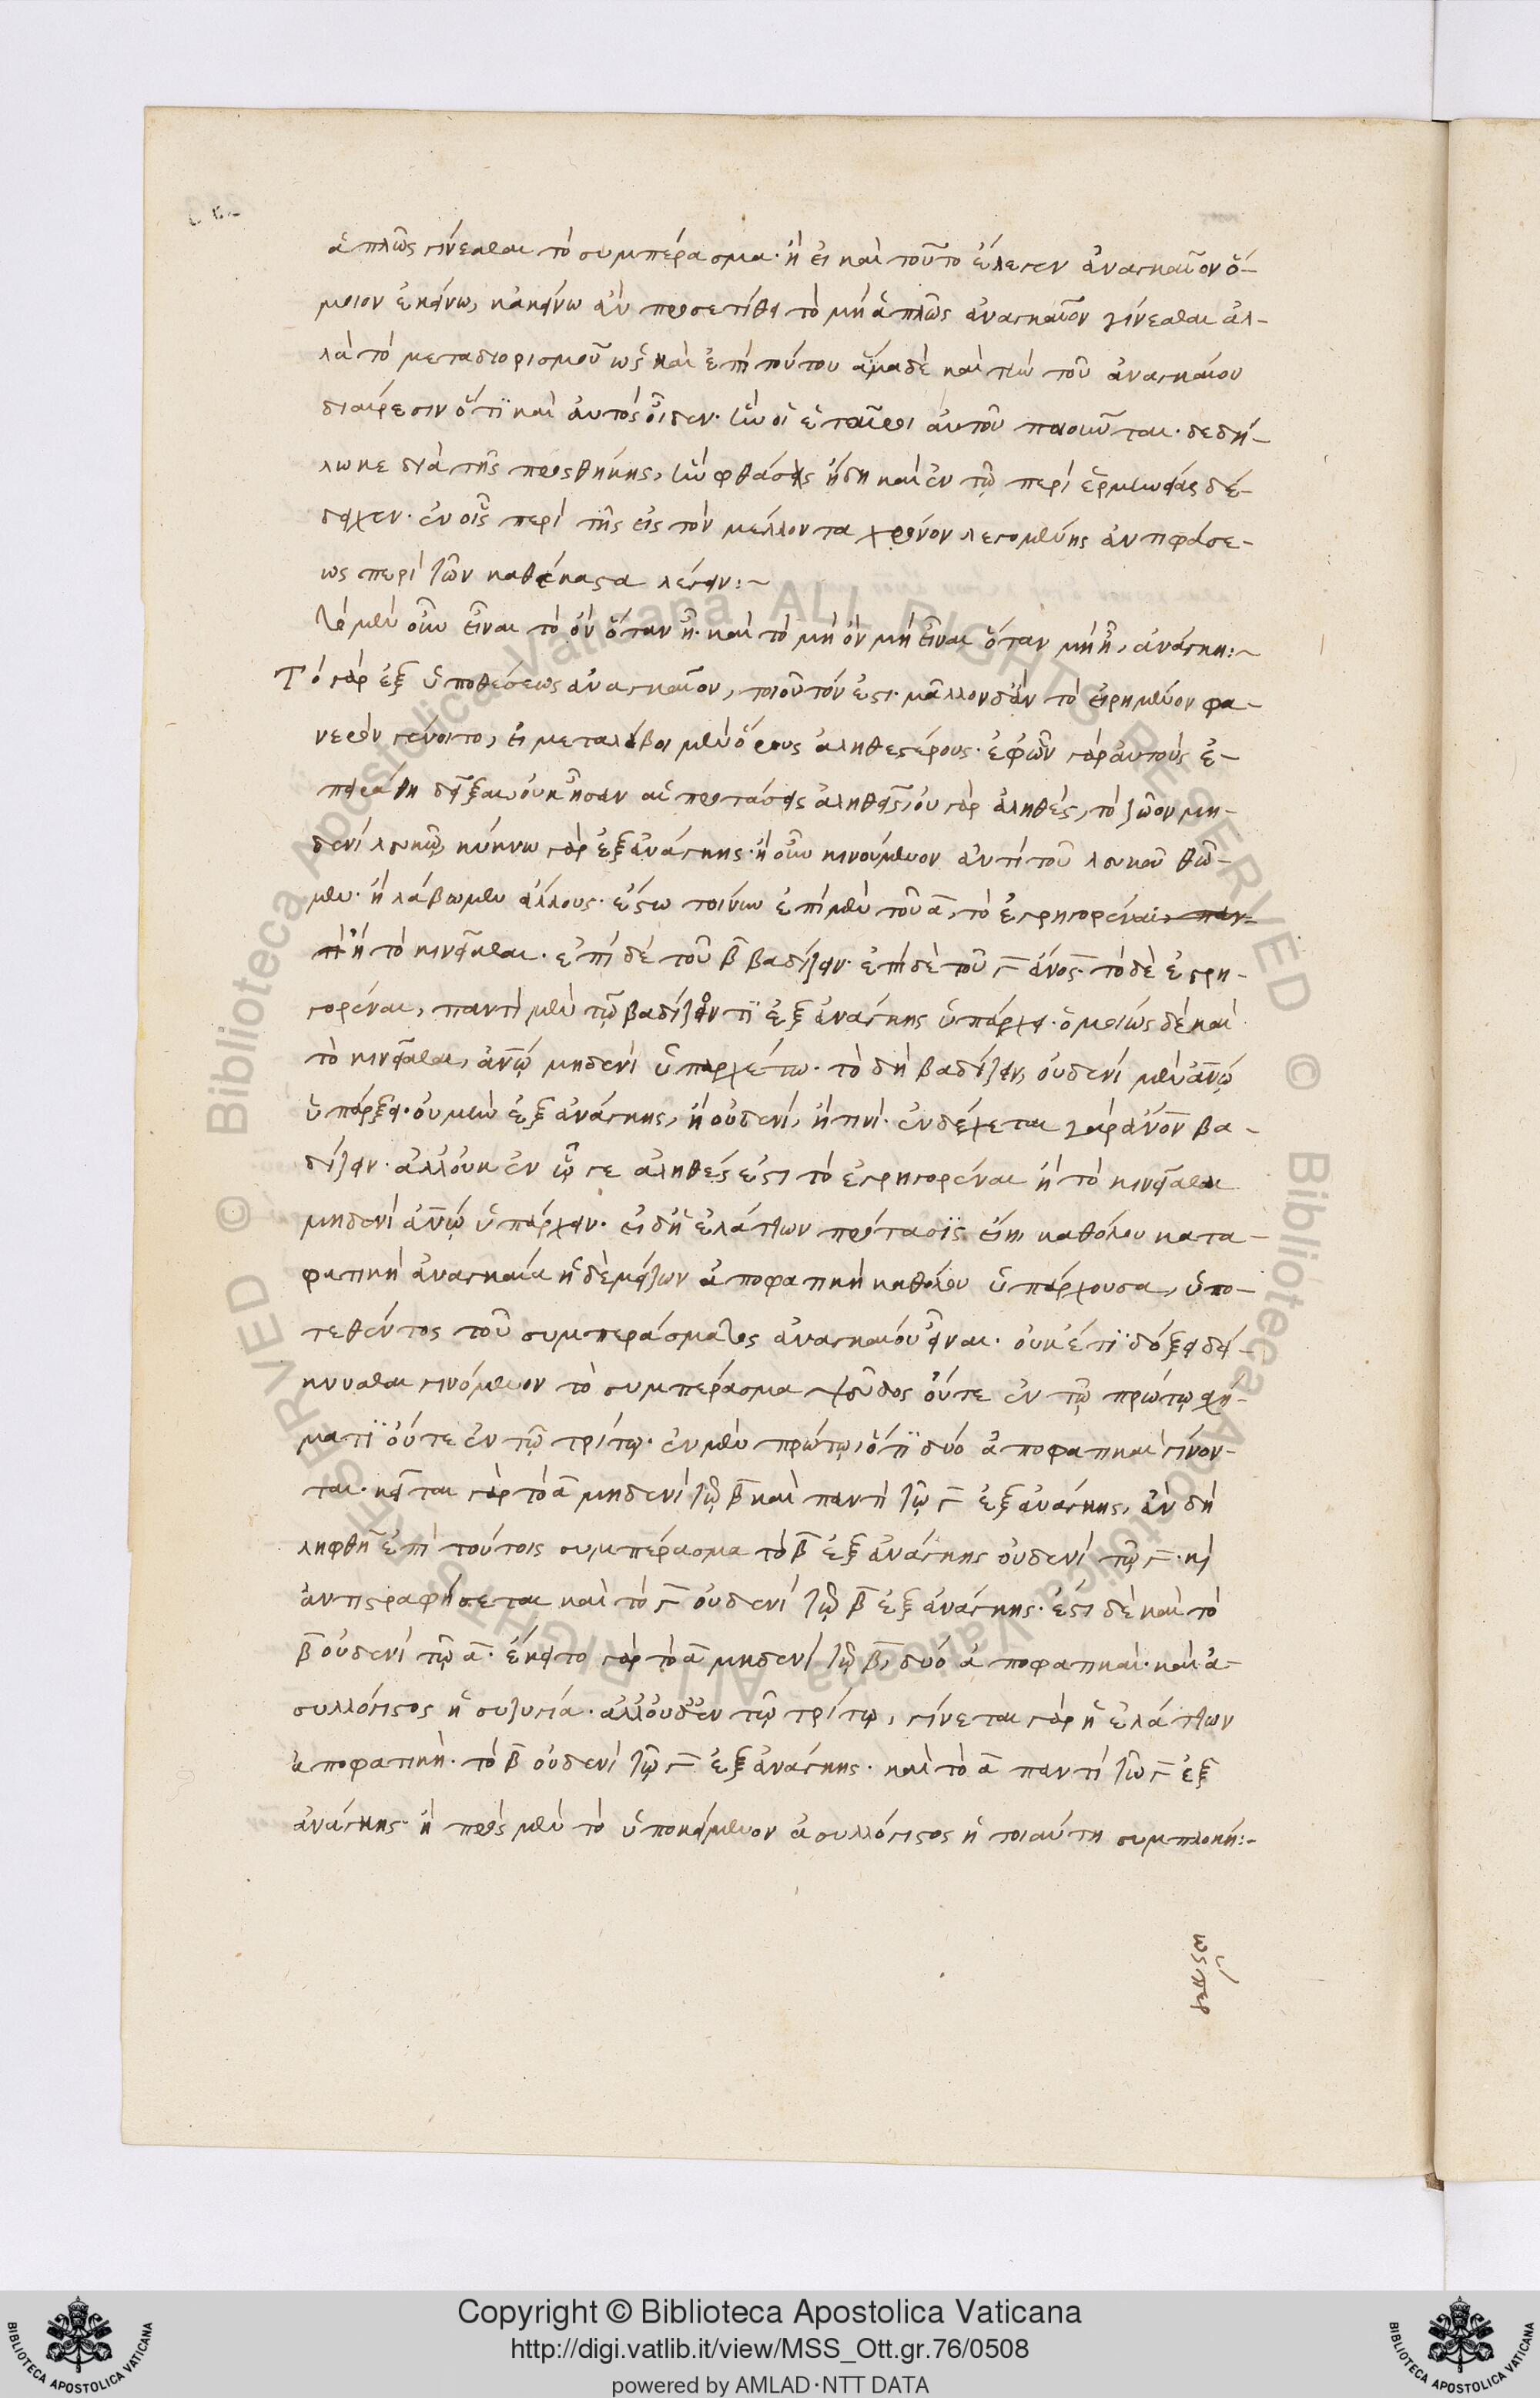 ἁπλῶς γίνεσθαι τὸ συμπέρασμα· ἢ εἰ καὶ τοῦτο ἔλεγεν ἀναγκαῖον ὅ-
μοιον ἐκείνω, κἀκείνω ἂν προσετίθει τὸ μὴ ἁπλῶς ἀναγκαῖον γίνεσθαι ἀλ-
λὰ τὸ μεταδιορισμοῦ ὡς καὶ ἐπὶ τούτου ἅμα δὲ καὶ τὴν τοῦ ἀναγκαίου
διαίρεσιν ὅτι καὶ αὐτὸς οἶδεν· ἣν οἱ ἑταῖροι αὐτοῦ ποιοῦνται· δεδή-
λωκε διὰ τῆς προσθήκης, ἣν φθάσας ἤδη καὶ ἐν τῷ περὶ ἑρμηνείας δέ-
δειχεν· ἐν οἷς περὶ τῆς εἰς τὸν μέλλοντα χρόνον λεγομένης ἀντιφάσε-
ως περὶ τῶν καθέκαστα λέγει:~
Τὸ μὲν οὖν εἶναι τὸ ὂν ὅταν ᾖ· καὶ τὸ μὴ ὂν μὴ εἶναι ὅταν μὴ ᾖ, ἀνάγκη:~
Τὸ γὰρ ἐξ ὑποθέσεως ἀναγκαῖον, τοιοῦτόν ἐστι· μᾶλλον δ' ἂν τὸ εἰρημένον φα-
νερὸν γένοιτο, εἰ μεταλάβοι μὲν ὅρους ἀληθεστέρους· ἐφ' ὧν γὰρ αὐτοὺς ἐ-
πειράθη δεῖξαι οὐκ ἦσαν αἱ προτάσεις ἀληθεῖς, οὐ γὰρ ἀληθές, τὸ ζῶον μη-
δενὶ λευκῷ, κύκνω γὰρ ἐξ ἀνάγκης· ἢ οὖν κινούμενον ἀντὶ τοῦ λευκοῦ θῶ-
μεν· ἢ λάβωμεν ἄλλους· ἔστω τοίνυν ἐπὶ μὲν τοῦ α, τὸ ἐγρηγορέναι, παν-
τὶ ἢ τὸ κινεῖσθαι· ἐπὶ δὲ τοῦ β βαδίζειν· ἐπὶ δὲ τοῦ γ ἄνος· τὸ δὲ ἐγρη-
γορέναι, παντὶ μὲν τῷ βαδίζοντι ἐξ ἀνάγκης ὑπάρχει· ὁμοίως δὲ καὶ
τὸ κινεῖσθαι, ἀνῷ μηδενὶ ὑπαρχέτω· τὸ δὴ βαδίζειν, οὐδενὶ μὲν ἀνῷ
ὑπάρξει· οὐ μὴν ἐξ ἀνάγκης, ἢ οὐδενί, ἢ τινί· ἐνδέχεται γὰρ ἄνον βα-
δίζειν· ἀλλ' οὐκ ἐν ᾧ γε ἀληθές ἐστι τὸ ἐγρηγορέναι ἢ τὸ κινεῖσθαι
μηδενὶ ἀνῷ ὑπάρχειν· εἰ δ' ἡ ἐλάττων πρότασις εἴη καθόλου κατα-
φατικὴ ἀναγκαία ἡ δὲ μείζων ἀποφατικὴ καθόλου ὑπάρχουσα, ὑπο-
τεθέντος τοῦ συμπεράσματος ἀναγκαίου εἶναι· οὐκ ἔτι δόξει δεί-
κνυσθαι γινόμενον τὸ συμπέρασμα ψεῦδος οὔτε ἐν τῷ πρώτῳ σχή-
ματι οὔτε ἐν τῷ τρίτῳ· ἐν μὲν πρώτῳ, ὅτι δύο ἀποφατικαὶ γίνον-
ται· κεῖται γὰρ τὸ α μηδενὶ τῷ β καὶ παντὶ τῷ γ ἐξ ἀνάγκης, ἂν δὴ
ληφθῇ ἐπὶ τούτοις συμπέρασμα τὸ β ἐξ ἀνάγκης οὐδενὶ τῷ γ· κὶ
ἀντιστραφήσεται καὶ τὸ γ οὐδενὶ τῷ β ἐξ ἀνάγκης· ἔστι δὲ καὶ τὸ
β οὐδενὶ τῷ α· ἔκειτο γὰρ τὸ α μηδενὶ τῷ β, δύο ἀποφατικαί· καὶ ἀ-
συλλόγιστος ἡ συζυγία· ἀλλ' οὐδ' ἐν τῷ τρίτῳ, γίνεται γὰρ ἡ ἐλάττων
ἀποφατικὴ· τὸ β οὐδενὶ τῷ γ ἐξ ἀνάγκης· καὶ τὸ α παντὶ τῷ γ ἐξ
ἀνάγκης· ἢ πρὸς μὲν τὸ ὑποκείμενον ἀσυλλόγιστος ἡ τοιαύτη συμπλοκή:~
ὥσπερ
Copyright © Biblioteca Apostolica Vaticana
http://digi.vatlib.it/view/MSS_Ott.gr.76/0508
powered by AMLAD·NTT DATA